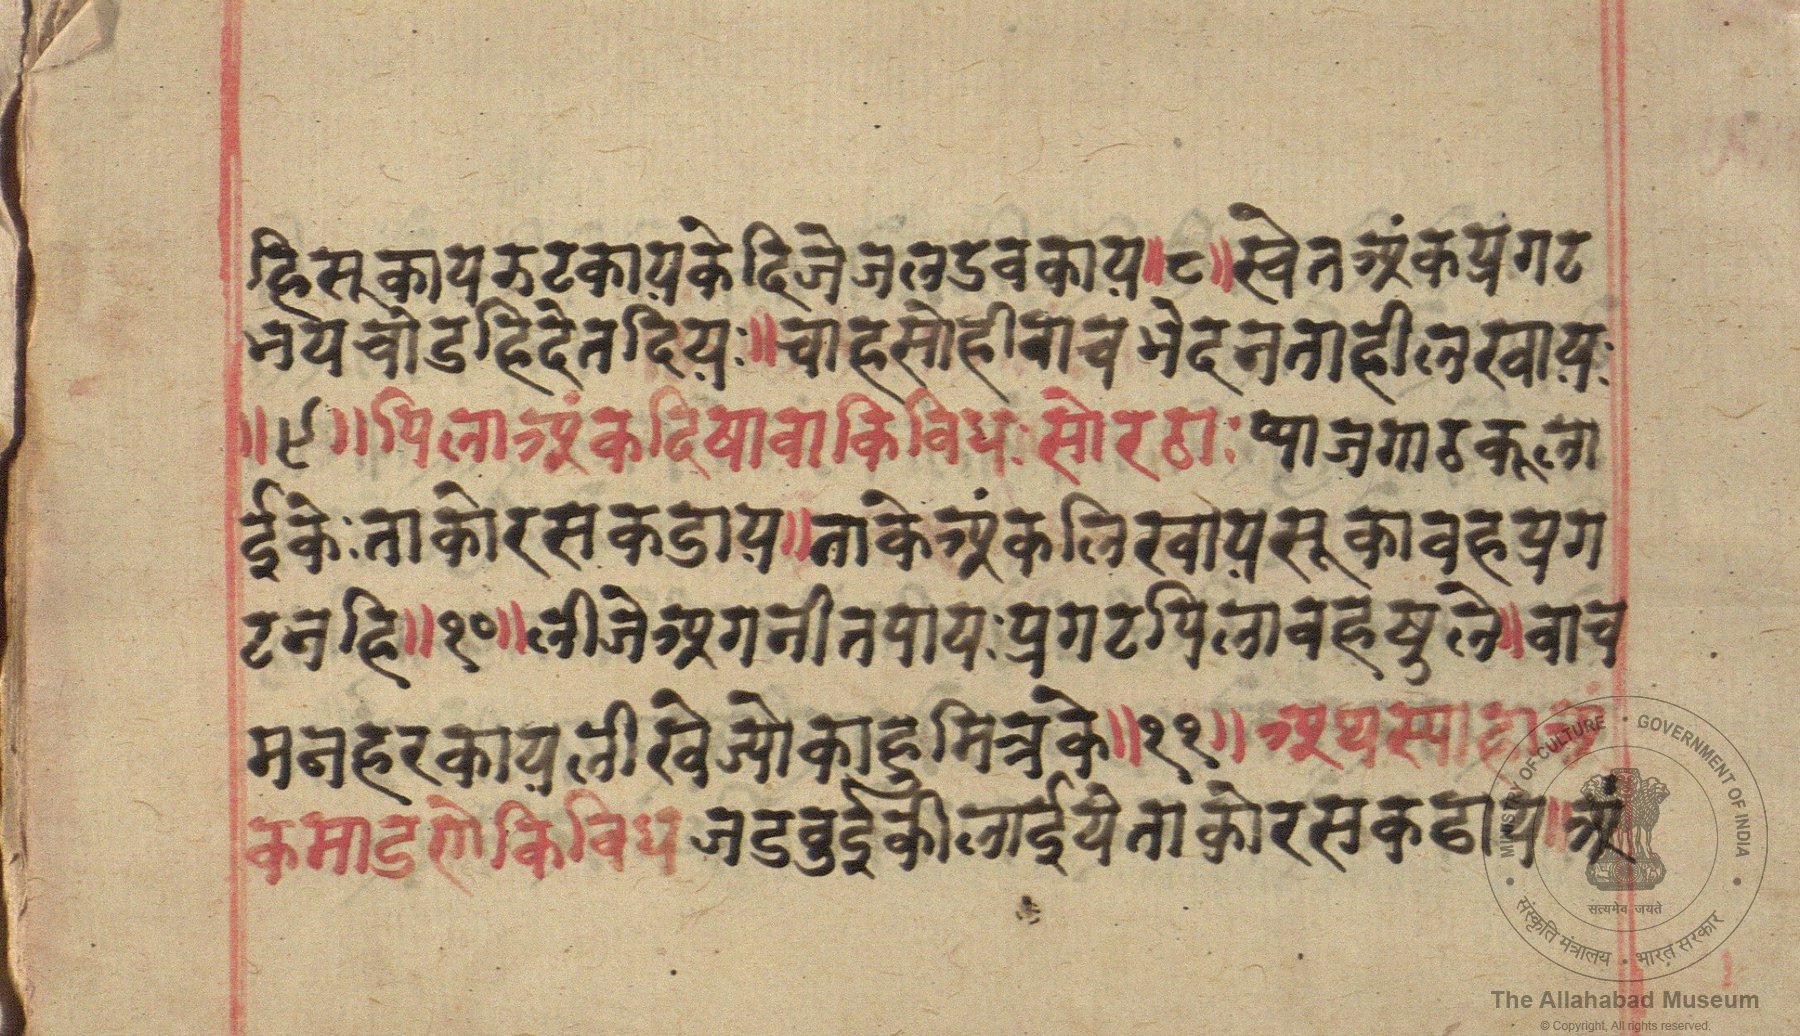 हिसूकायऊटकायकेदिजेजलडवकाय॥८॥स्वेतअंकप्रगट
भयचोडहिदेतदिय:॥चाहसोहीवाचभेदनताहीलखाय:
॥९॥पिलाअंकदिषावाकिविध:सोरठा:प्याजगाठकूला
ईके:ताकोरसकडाय॥ताकेअंकलिखायसूकावहप्रग
टनहि॥१०॥लीजेअगनीतपाय:प्रगटपिलावहषुले॥वाच
मनहरकायलीखेज्योकाहुमित्रके॥११॥अथस्पाहाअं
कमाडसोकिविध जडवुईकीलाईयेताकोरसकढाय॥अं
MINISTRY OF CULTURE • GOVERNMENT OF INDIA
सत्यमेव जयते
संस्कृति मंत्रालय • भारत सरकार
The Allahabad Museum
© Copyright, All rights reserved.